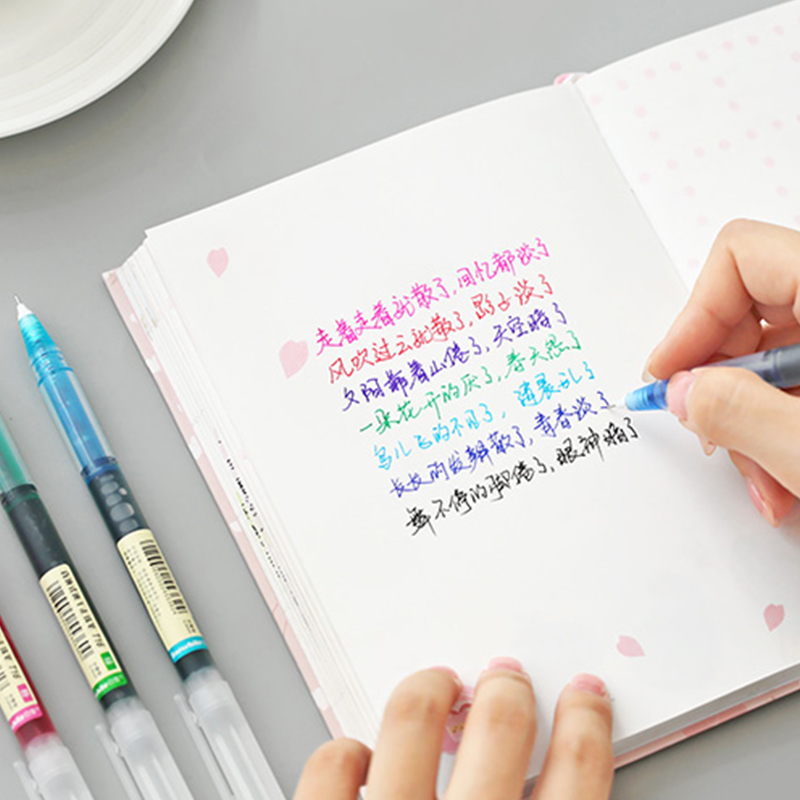 走着走着就散了,回忆都淡了
风吹过云就散了,影子淡了
夕阳靠着山倦了,天空暗了
一朵花开的厌了,春天怨了
鸟儿飞的不见了,清晨乱了
长长的发辫散了,青春淡了
舞不停的脚倦了,眼神暗了